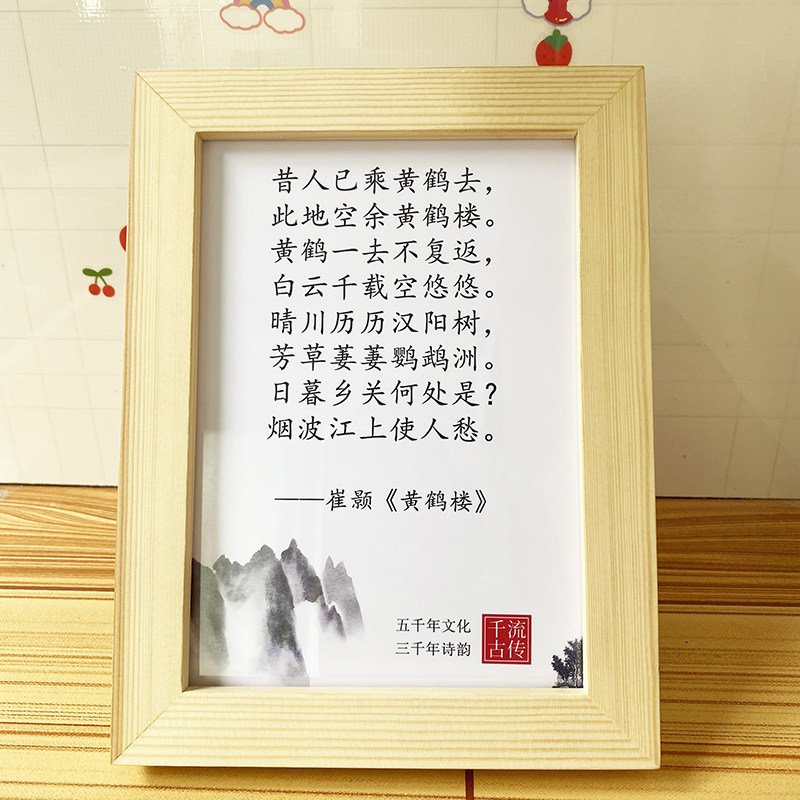 昔人已乘黄鹤去，
此地空余黄鹤楼。
黄鹤一去不复返，
白云千载空悠悠。
晴川历历汉阳树，
芳草萋萋鹦鹉洲。
日暮乡关何处是？
烟波江上使人愁。
——崔颢《黄鹤楼》
五千年文化
三千年诗韵
千流
古传